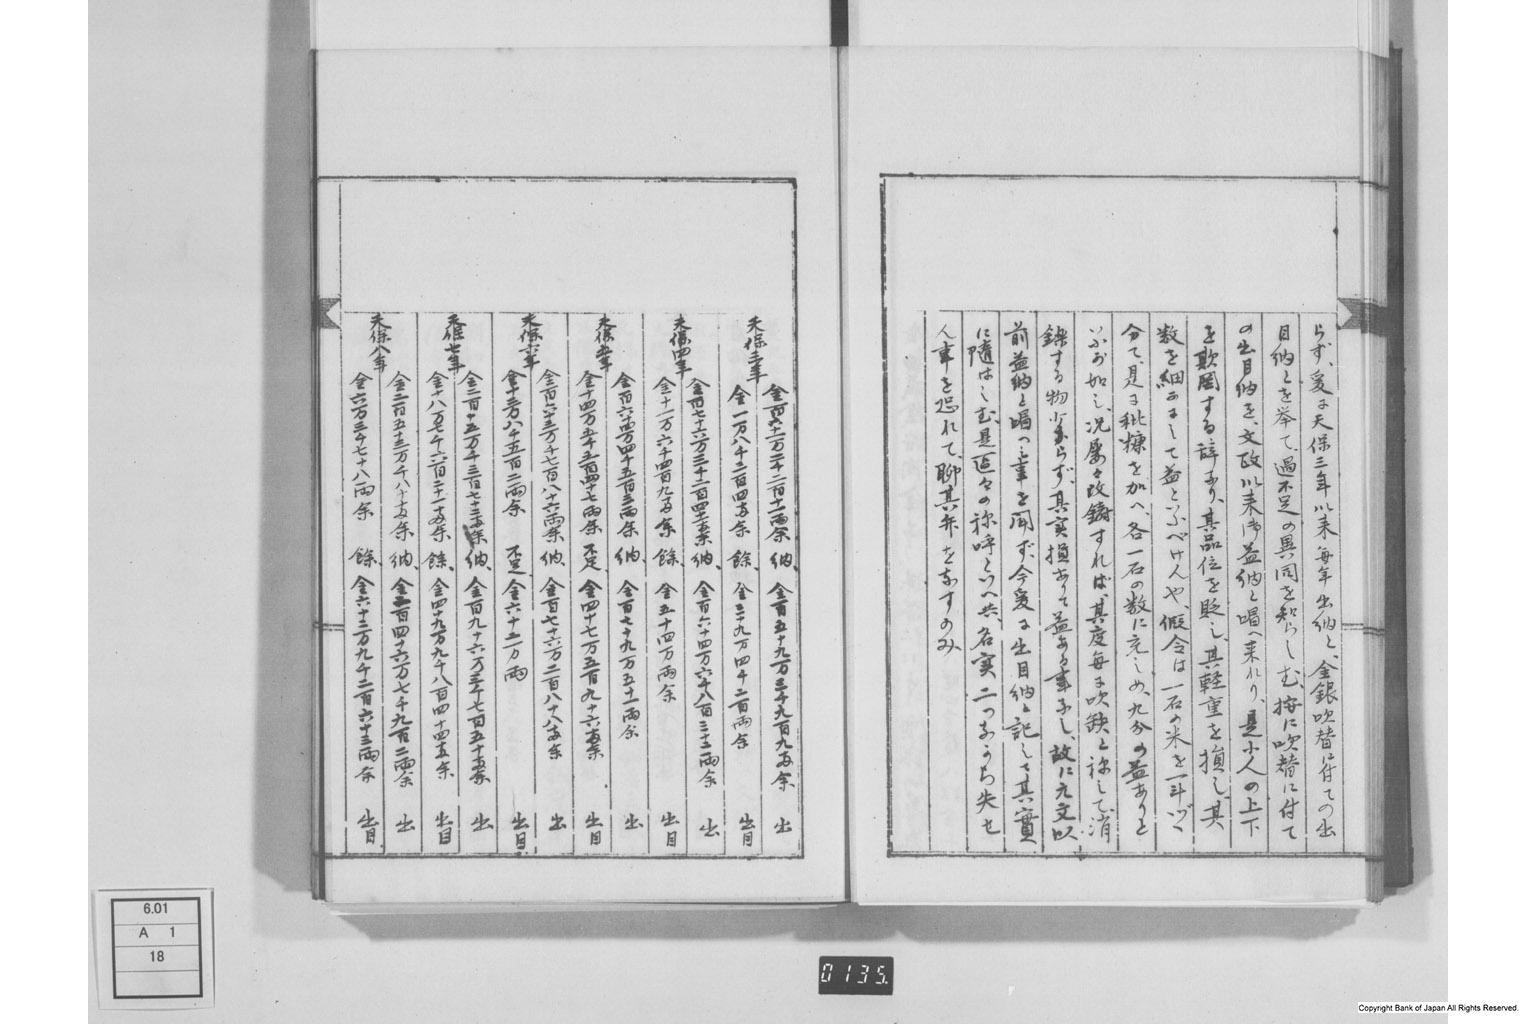 らず、爰に天保三年以来毎年出納と、金銀吹替に付ての出
目納とを挙て、過不足の異同を知らしむ、按に吹替に付て
の出目納を、文政以来御益納と唱へ来れり、是小人の上下
を欺罔する辞にて、其品位を貶し、其軽重を損し、其
数を細かにして益といふべけんや、仮令は一石の米を一斗づゝ
分て、是に粃糠を加へ、各一石の数に充しめ、九分の益ありと
いふが如し、况屡々改鋳すれば、其度毎に吹缺と称して、消
鎔する物少からず、其実損ありて益ある事なし、故に元文以
前益納と唱へし事を聞ず、今爰に出目納と記して其實
に隨はしむ、是區々の称呼といへ共、名実二つながら失せ
ん事を恐れて、聊其弁をなすのみ
金百六十一万二千二百十一両余 納、金百五十九万三千九百九両余 出
天保三年
金一万八千二百四両余 餘、金三十九万四千二百両余 出目
金百七十六万三千二百四十五両余 納、金百六十四万六千八百三十二両余 出
天保四年
金十一万六千四百九両余 餘、金五十四万両余 出目
金百六十四万四千五百三両余 納 金百七十九万五十一両余 出
天保五年
金十四万五千五百四十七両余 不足 金四十七万五百九十六両余 出目
金百六十三万千七百八十六両余 納 金百七十六万二百八十八両余 出
天保六年
金十三万八千五百二両余 不足 金六十二万両 出目
金二百十五万千三百七十三両余 納、金百九十六万三千七百五十両余 出
天保七年
金十八万七千六百二十二両余 餘、金四十九万九千八百四十四両余 出目
金二百五十三万千八十両余 納、金二百四十六万七千九百二両余 出
天保八年
金六万三千七十八両余 餘 金六十三万九千二百六十三両余 出目
6.01
A 1
18
0135.
Copyright Bank of Japan All Rights Reserved.